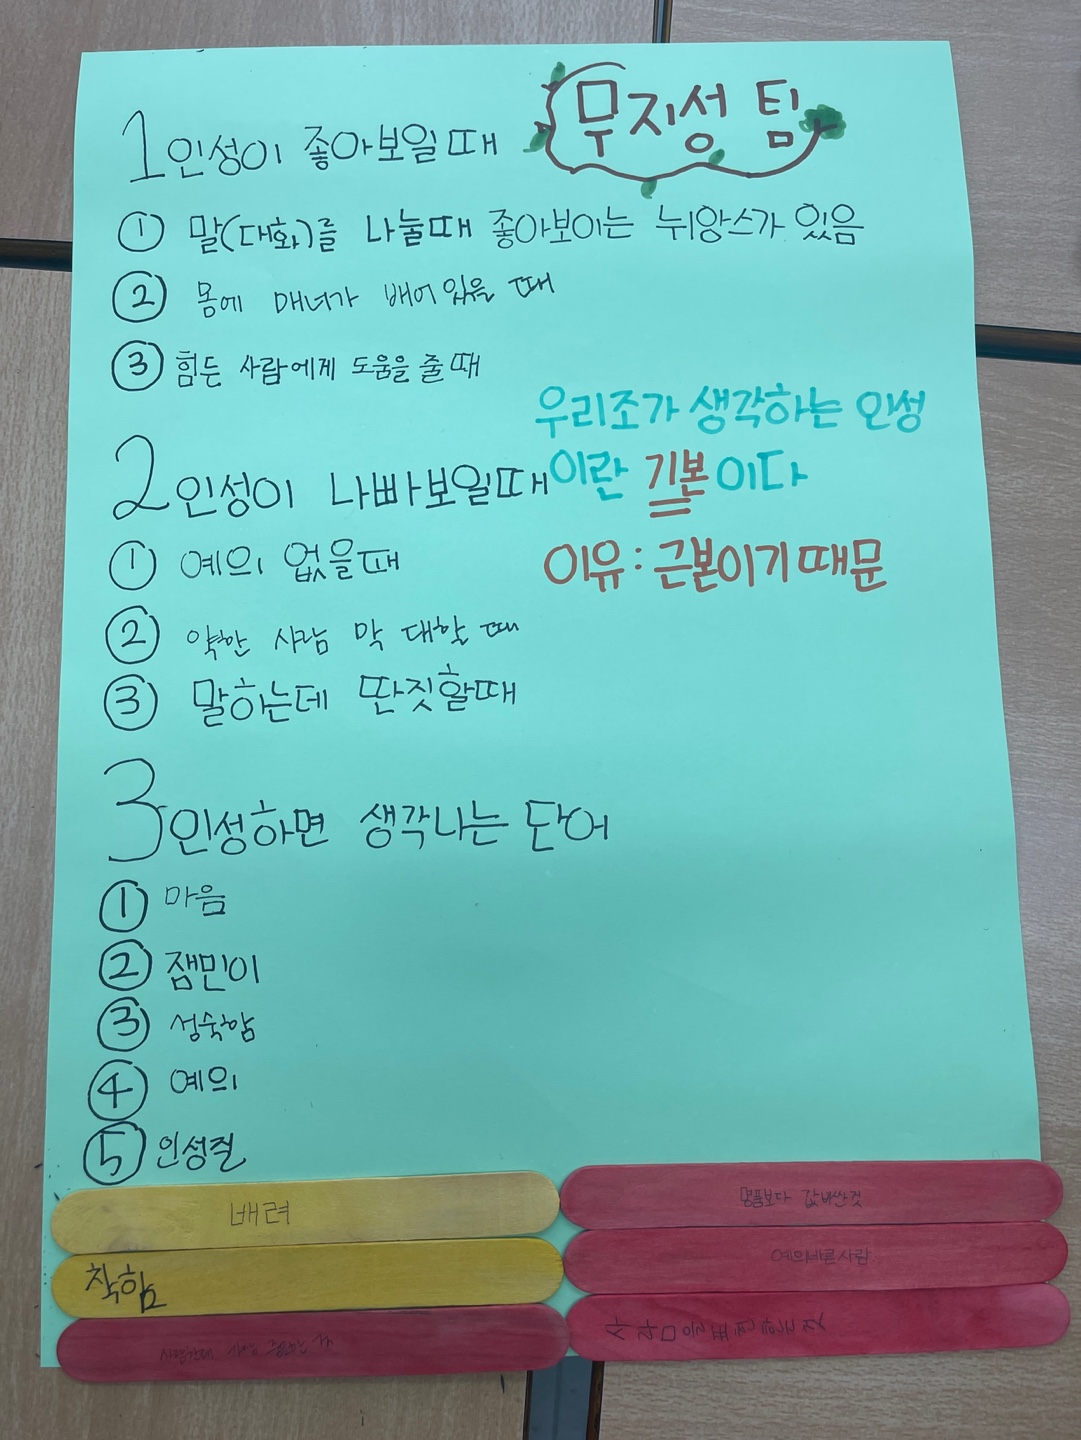 무지성 팀
1 인성이 좋아보일때
① 말(대화)를 나눌때 좋아보이는 뉘앙스가 있음
② 몸에 매너가 배어 있을 때
③ 힘든 사람에게 도움을 줄때
우리조가 생각하는 인성
이란 기본이다
이유: 근본이기때문
2 인성이 나빠보일때
① 예의 없을때
② 약한 사람 막 대할 때
③ 말하는데 딴짓할때
3 인성하면 생각나는 단어
① 마음
② 잼민이
③ 성숙함
④ 예의
⑤ 인성질
배려
착함
명품보다 값비싼것
예의바른사람